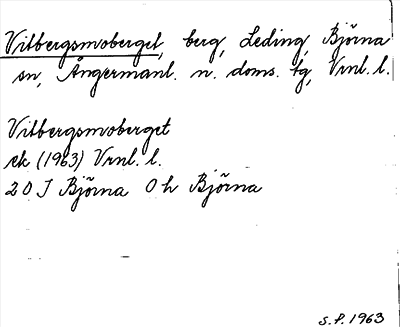 Vitbergsmoberget, berg, Leding, Björna
sn, Ångermanl. n. doms. tg, Vrnl. l.
Vitbergsmoberget
ek (1963) Vrnl. l.
20 J Björna 0 h Björna
S.P. 1963